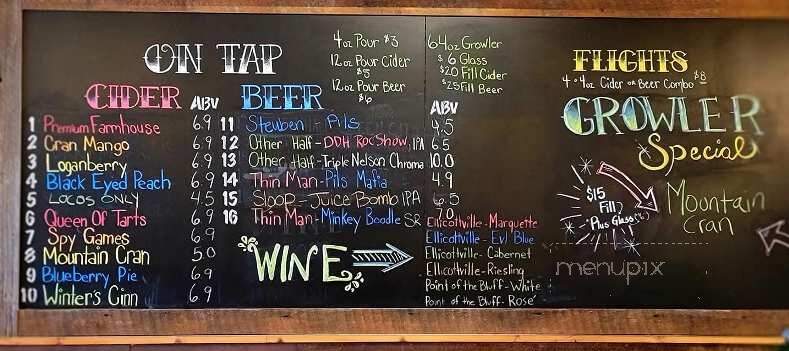 ON TAP
4oz Pour $3
12oz Pour Cider
$5
12oz Pour Beer
$6
64oz Growler
$6 Glass
$20 Fill Cider
$25 Fill Beer
CIDER ABV
1 Premium Farmhouse 6.9
2 Cran Mango 6.9
3 Loganberry 6.9
4 Black Eyed Peach 6.9
5 LOCOS ONLY 4.5
6 Queen Of Tarts 6.9
7 Spy Games 6.9
8 Mountain Cran 5.0
9 Blueberry Pie 6.9
10 Winter's Ginn 6.9
BEER ABV
11 Steuben - Pils 4.5
12 Other Half - DDH Roc Show, IPA 6.5
13 Other Half - Triple Nelson Chroma 10.0
14 Thin Man - Pils Mafia 4.9
15 SLOOP - JUICE BOMB IPA 6.5
16 Thin Man - Minkey Boodle SR 7.0
WINE
Ellicottville - Marquette
Ellicottville - Evl Blue
Ellicottville - Cabernet
Ellicottville - Riesling
Point of the Bluff - White
Point of the Bluff - Rosé
FLIGHTS
4 • 4oz Cider or Beer Combo $8
GROWLER
Special
$15
Fill
Plus Glass
Mountain
Cran
menupix